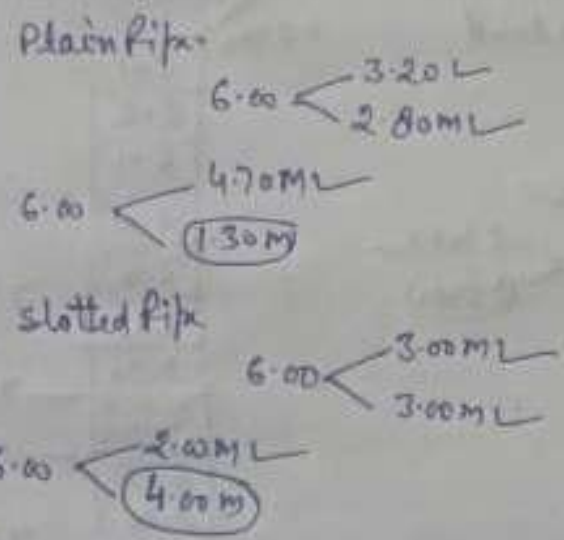 Plain Pipe.
6.00 3.20 ✓
2.80M ✓
6.00 4.70M ✓
1.30M
Slotted Pipe
6.00 3.00M ✓
3.00M ✓
6.00 2.00M ✓
4.00M